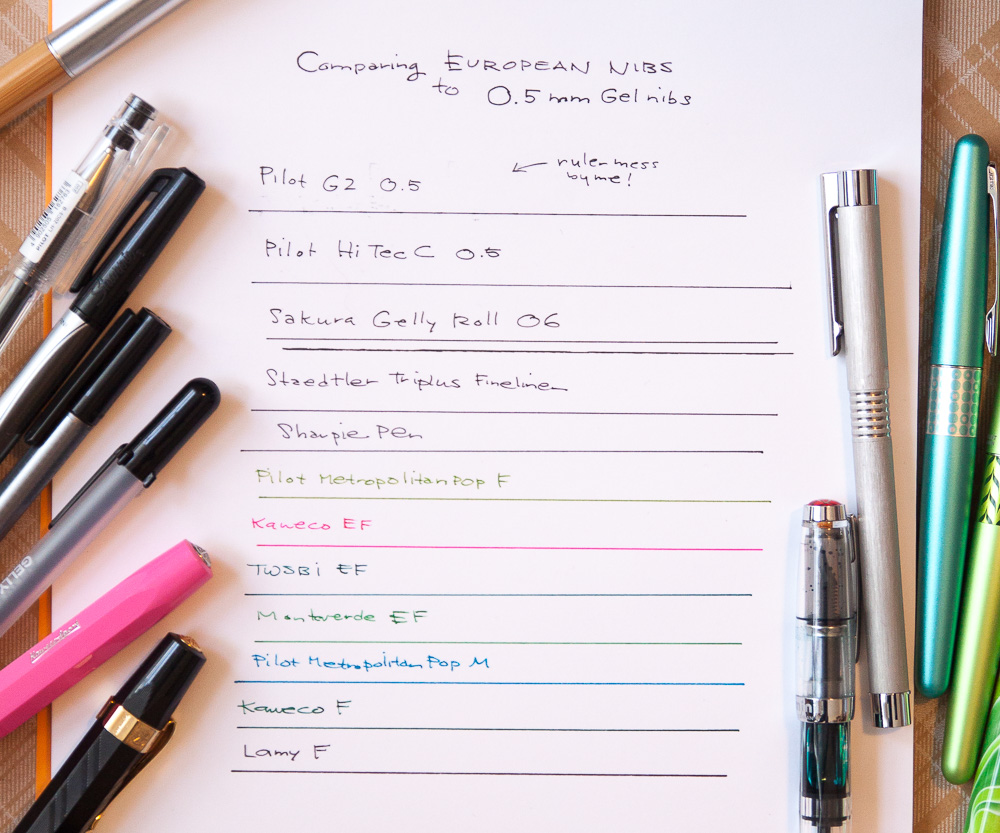 Comparing EUROPEAN NIBS
to 0.5 mm Gel nibs
ruler mess
by me!
Pilot G2 0.5
Pilot Hi Tec C 0.5
Sakura Gelly Roll 06
Staedtler Triplus Fineliner
Sharpie Pen
Pilot Metropolitan Pop F
Kaweco EF
TWSBi EF
Monteverde EF
Pilot Metropolitan Pop M
Kaweco F
Lamy F
GELLY